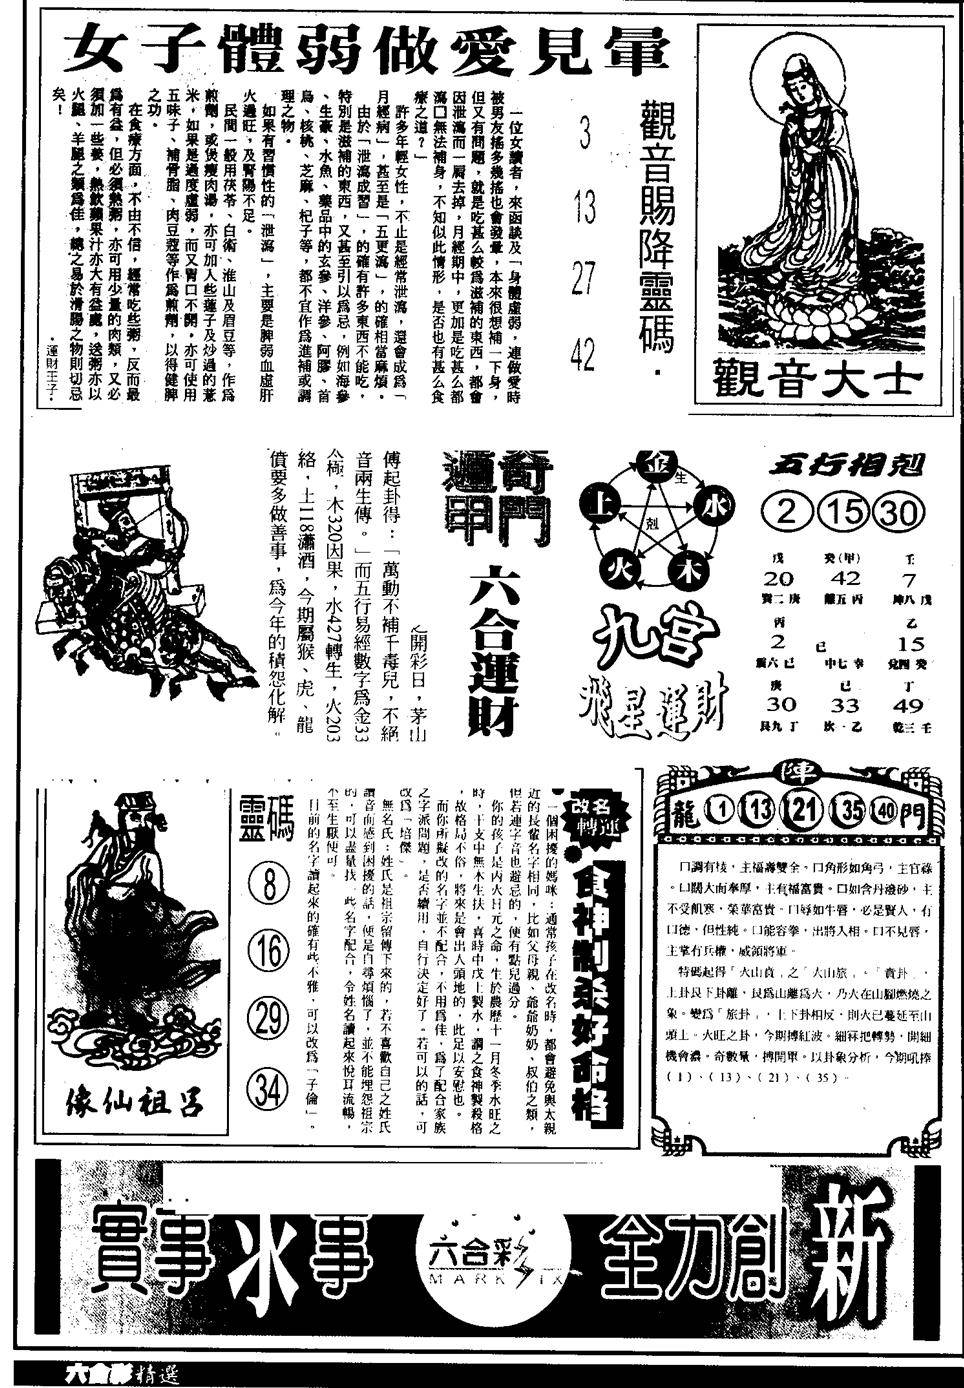 女子體弱做愛見暈
一位女讀者，來函談及「身體虛弱，連做愛時
被男友搖多幾搖也會發暈，本來很想補一下身，
但又有問題，就是吃甚么較為滋補的東西，都會
因泄瀉而一屑去掉，月經期中，更加是吃甚么都
瀉口無法補身，不知似此情形，是否也有甚么食
療之道？」
許多年輕女性，不止是經常泄瀉，還會成為「
月經病」，甚至是「五更瀉」，的確相當麻煩。
由於「泄瀉成習」，的確有許多東西不能吃，
特別是滋補的東西，又甚至引以為忌，例如海參
、生蠔、水魚、藥品中的玄參、洋參、阿膠、首
烏、核桃、芝麻、杞子等，都不宜作為進補或調
理之物。
如果有習慣性的「泄瀉」，主要是脾弱血虛肝
火過旺，及腎陽不足。
民間一般用茯苓、白術、淮山及眉豆等，作為
煎劑，或煲瘦肉湯，亦可加入些蓮子及炒過的薏
米，如果是過度虛弱，而又胃口不開，亦可使用
五味子、補骨脂、肉豆蔻等作為煎劑，以得健脾
之功。
在食療方面，不由不信，經常吃些粥，反而最
為有益，但必須熱粥，亦可用少量的肉類，又必
須加一些姜，熱飲蘋果汁亦大有益處，送粥亦以
火腿、羊腿之類為佳，總之易於滑腸之物則切忌
矣！
·運財王子·
觀音賜降靈碼．
3
13
27
42
觀音大士
奇門遁甲
六合運財
之開彩日，茅山
傅起卦得：「萬動不補千毒兒，不絕
音兩生傳。」而五行易經數字為金33
公極，木320因果，水427轉生，火203
絡，土118瀟洒，今期屬猴、虎、龍
償要多做善事，為今年的積怨化解。
五行相剋
2 15 30
金
生
水
木
火
土
剋
九宮
飛星運財
戊 癸(甲) 壬
20 42 7
巽二庚 離五丙 坤八戊
丙 乙
2 己 15
震六己 中七辛 兌四癸
庚 己 丁
30 33 49
艮九丁 坎一乙 乾三壬
呂祖仙像
靈碼
8
16
29
34
改名轉運
食神制杀好命格
一個困擾的媽咪：通常孩子在改名時，都會避免與太親
近的長輩名字相同，比如父母親、爺爺奶奶、叔伯之類，
但若連字音也避忌的，便有點兒過分。
你的孩子是丙火日元之命，生於農歷十一月冬季水旺之
時，干支中無木生扶，喜時中戊土製水，謂之食神製殺格
，故格局不俗，將來是會出人頭地的，此足以安慰也。
而你所擬改的名字並不配合，不用為佳，為了配合家族
之字派問題，是否續用，自行決定好了。若可以的話，可
改為「培傑」。
無名氏：姓氏是祖宗留傳下來的，若不喜歡自己之姓氏
讀音而感到困擾的話，便是自尋煩惱了，並不能埋怨祖宗
的，可以盡量找一些名字配合，令姓名讀起來悅耳流暢，
不至生厭便可。
目前的名字讀起來的確有些不雅，可以改為「子倫」。
陣
龍 1 13 21 35 40 門
口調有稜，主福壽雙全。口角形如角弓，主官祿
。口闊大而奉厚，主有福富貴。口如含丹潑砂，主
不受飢寒，榮華富貴。口唇如牛唇，必是賢人，有
口德，但性純。口能容拳，出將入相。口不見唇，
主掌有兵權，威領將軍。
特碼起得「火山賁」之「火山旅」。「賁卦」，
上卦艮下卦離，艮為山離為火，乃火在山腳燃燒之
象。變為「旅卦」，上下卦相反，則火已蔓延至山
頭上。火旺之卦，今期搏紅波。細冧把轉勢，開細
機會濃。奇數量，搏開單。以卦象分析，今期吼捧
（1）、（13）、（21）、（35）。
實事求事
六合彩
MARK SIX
全力創新
六合彩精選